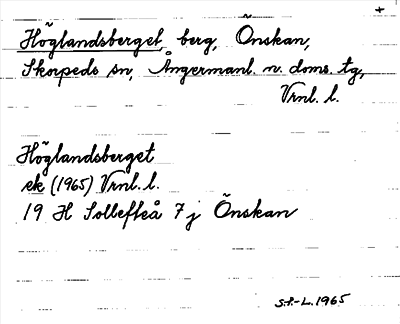 +
Höglandsberget, berg, Önskan,
Skorpeds sn, Ångermanl. n. doms. tg,
Vrnl. l.
Höglandsberget
ek (1965) Vrnl. l.
19 H Sollefteå 7 j Önskan
S.P.-L. 1965